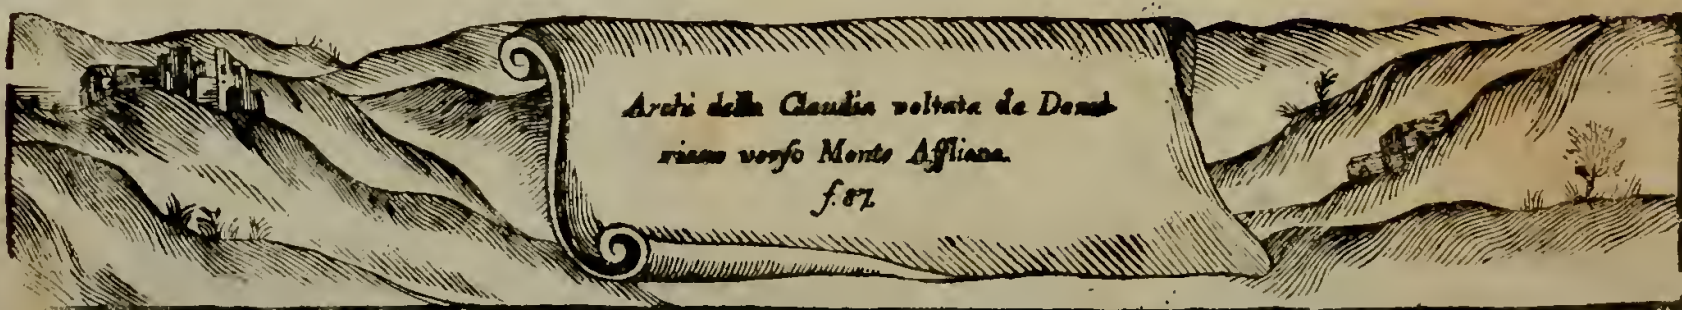 Archi della Claudia voltata da Domi-
tiano verſo Monte Affliano.
f. 87.